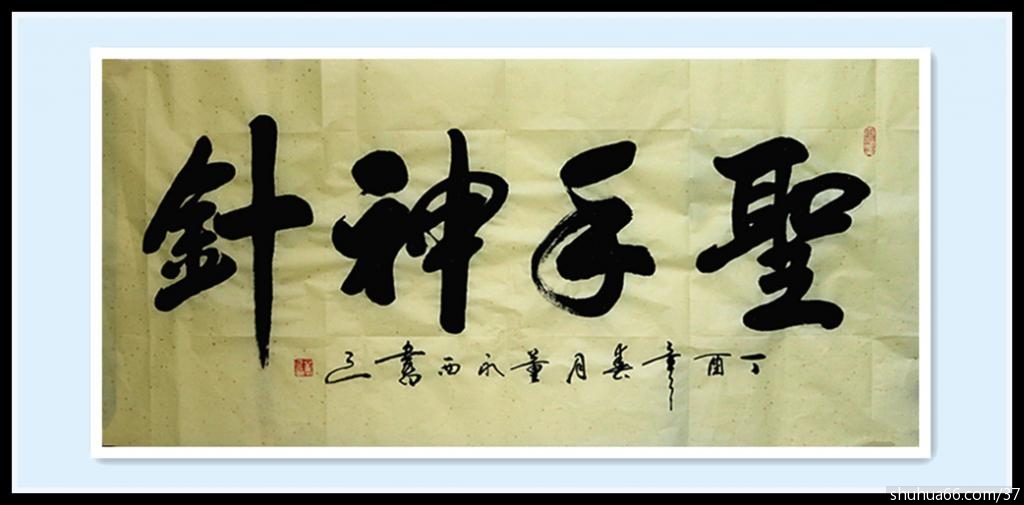 聖手神針
丁酉年春月董永西書
shuhua66.com/37